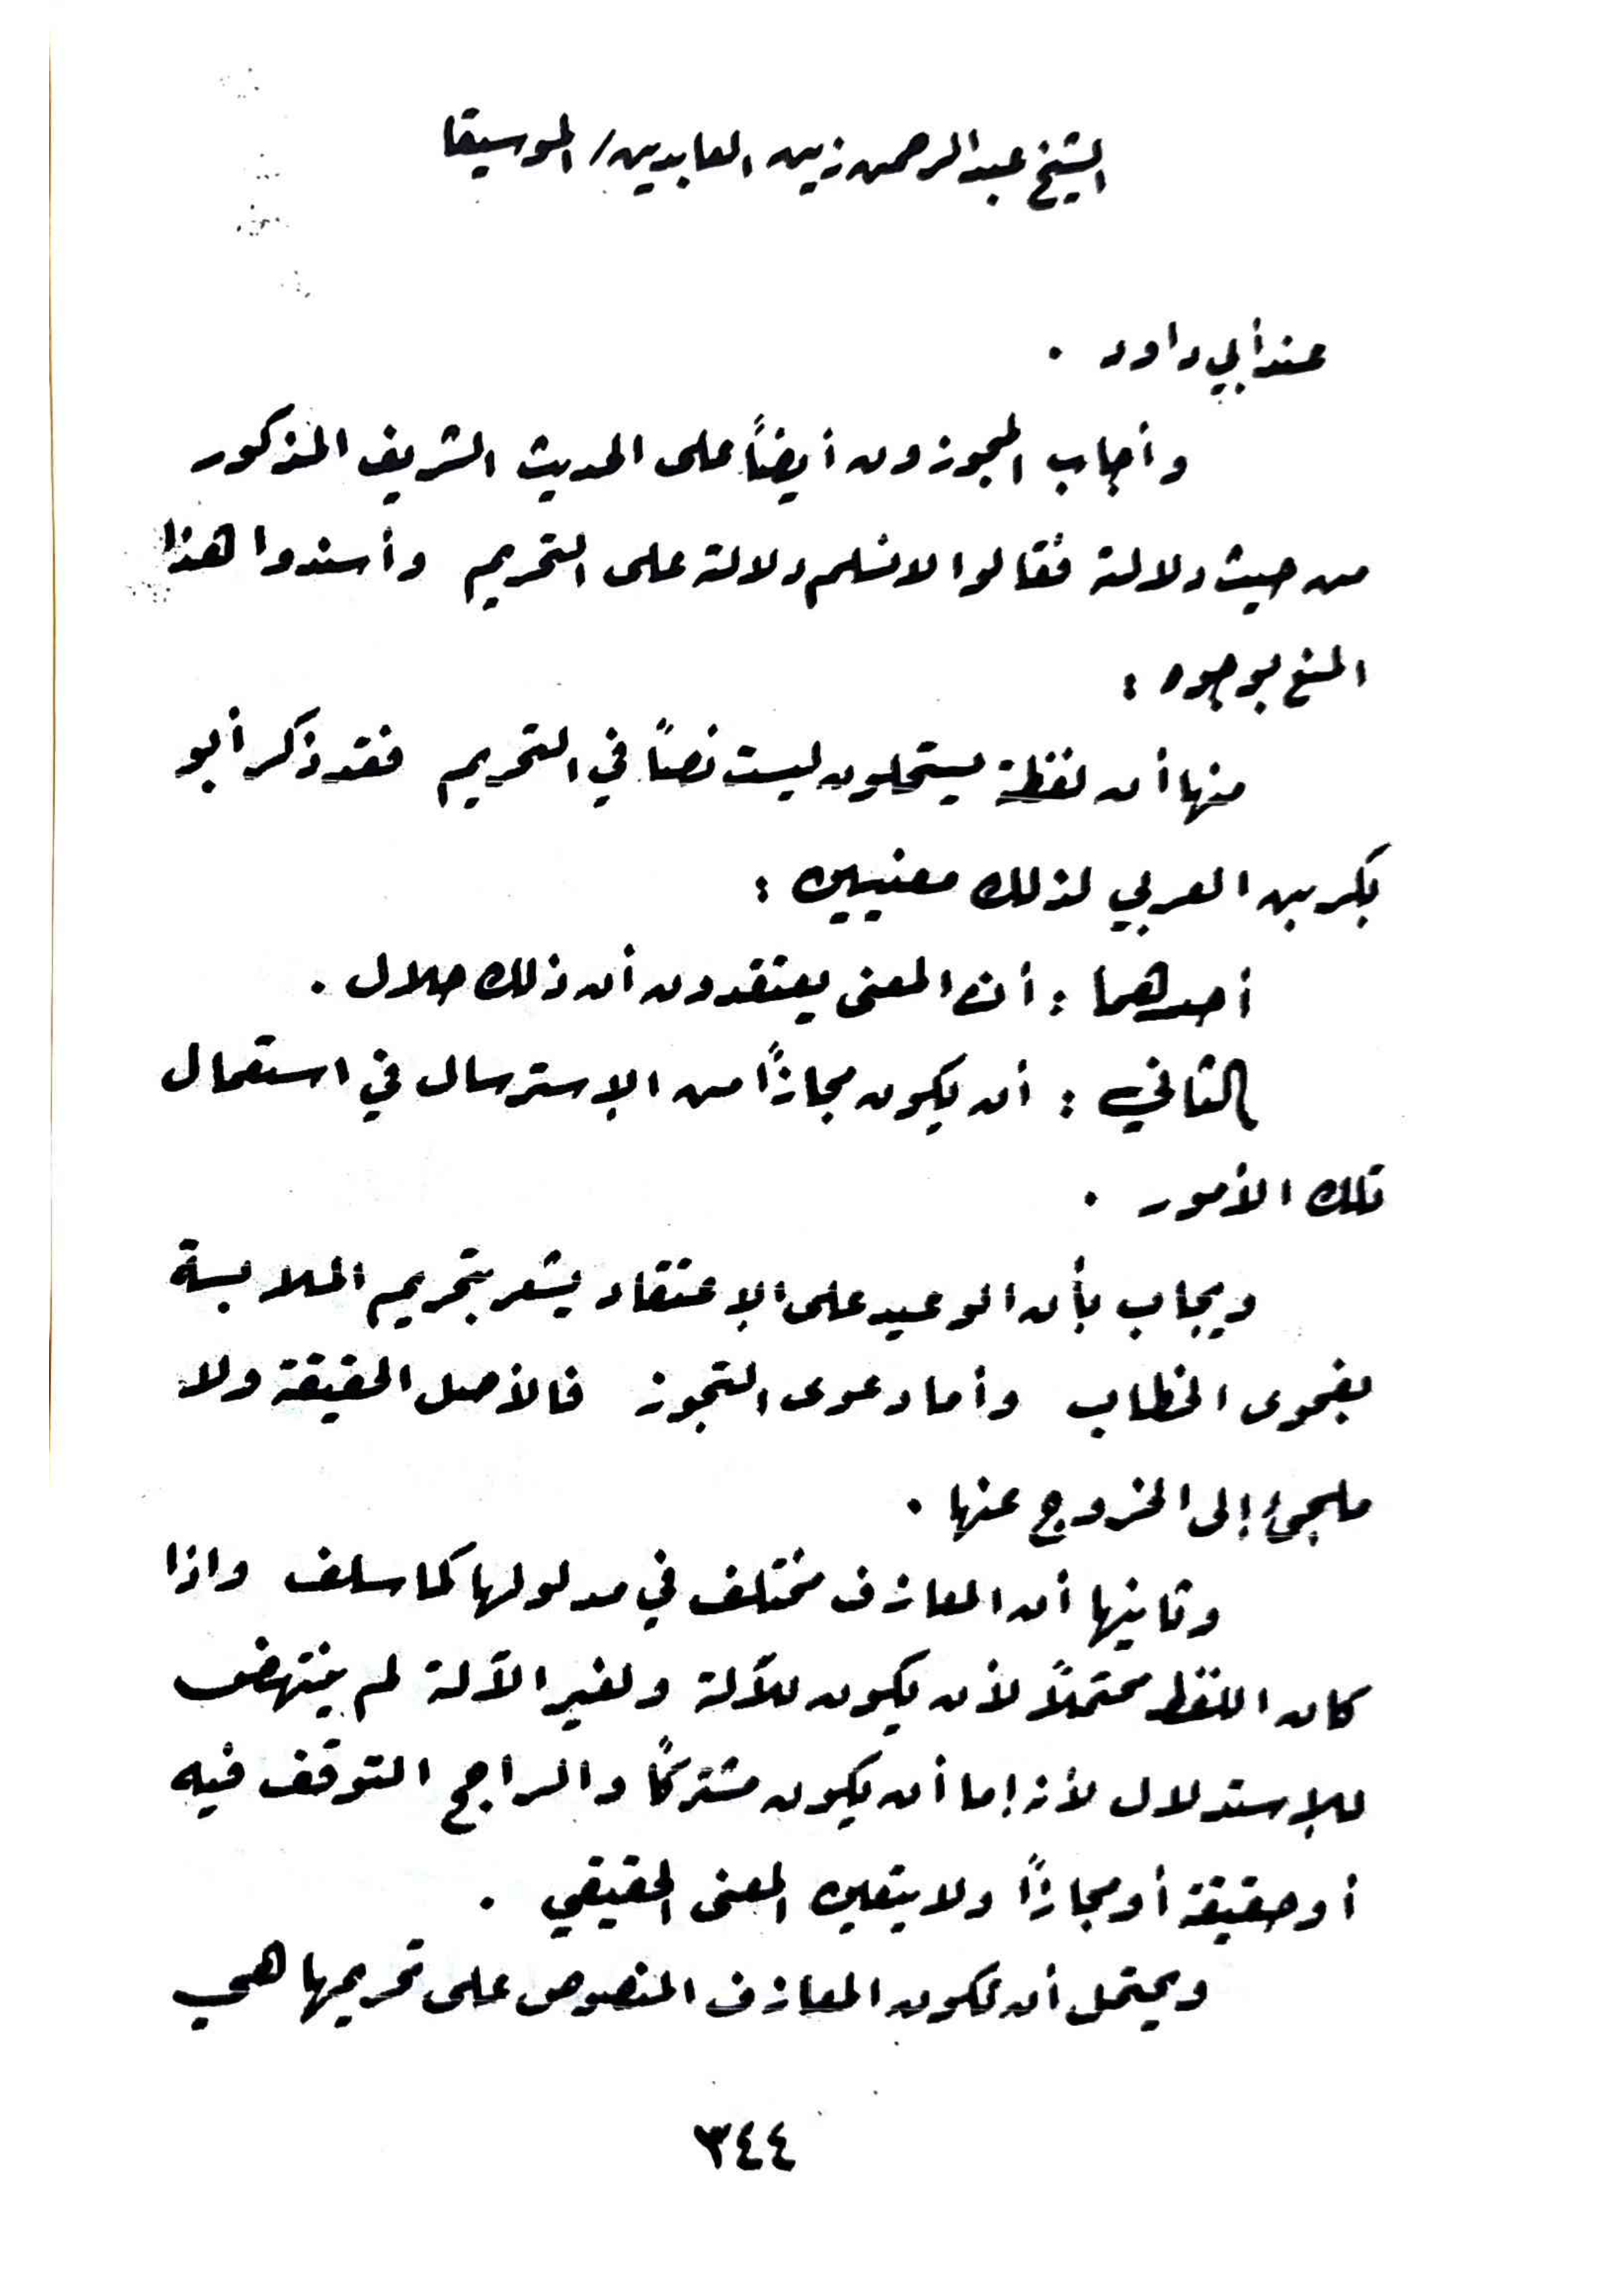 الشيخ عبدالرحمن زين العابدين / الموسيقا
عند أبي داود .
وأجاب المجوزون أيضاً على الحديث الشريف المذكور
من حيث دلالة فقالوا لا نسلم دلالة على التحريم وأسندوا هذا
المنع بوجوه :
منها أن لفظة يستحلون ليست نصاً في التحريم فقد ذكر أبو
بكر بن العربي لذلك معنيين :
أحدهما : أن المعنى يعتقدون أن ذلك حلال .
الثاني : أن يكون مجازاً من الإسترسال في استعمال
تلك الأمور .
ويجاب بأن الوعيد على الإعتقاد يشعر بتحريم الملابسة
بفحوى الخطاب وأما دعوى التجوز فالأصل الحقيقة ولا
ملجئ إلى الخروج عنها .
وثانيها أن المعازف مختلف في مدلولها كما سلف واذا
كان اللفظ محتملاً لأن يكون للآلة ولغير الآلة لم ينتهض
للإستدلال لأنه إما أن يكون مشتركاً والراجح التوقف فيه
أو حقيقة أو مجازاً ولا يتعين المعنى الحقيقي .
ويحتمل أن تكون المعازف المنصوص على تحريمها هي
٣٤٤